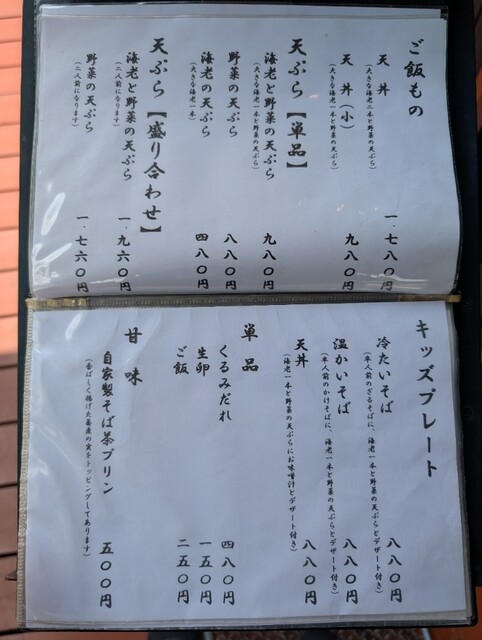 ご飯もの
天丼
(大きな海老二本と野菜の天ぷら)
一、七八〇円
天丼(小)
(大きな海老一本と野菜の天ぷら)
九八〇円
天ぷら【単品】
海老と野菜の天ぷら
(大きな海老一本と野菜の天ぷら)
九八〇円
野菜の天ぷら
八八〇円
海老の天ぷら
(大きな海老一本)
四八〇円
天ぷら【盛り合わせ】
海老と野菜の天ぷら
(二人前になります)
一、九六〇円
野菜の天ぷら
(二人前になります)
一、七六〇円
キッズプレート
冷たいそば
(半人前のざるそばに、海老一本と野菜の天ぷらとデザート付き)
八八〇円
温かいそば
(半人前のかけそばに、海老一本と野菜の天ぷらとデザート付き)
八八〇円
天丼
(海老一本と野菜の天ぷらにお味噌汁とデザート付き)
八八〇円
単品
くるみだれ
四八〇円
生卵
一五〇円
ご飯
二五〇円
甘味
自家製そば茶プリン
(香ばしく揚げた蕎麦の実をトッピングしてあります)
五〇〇円